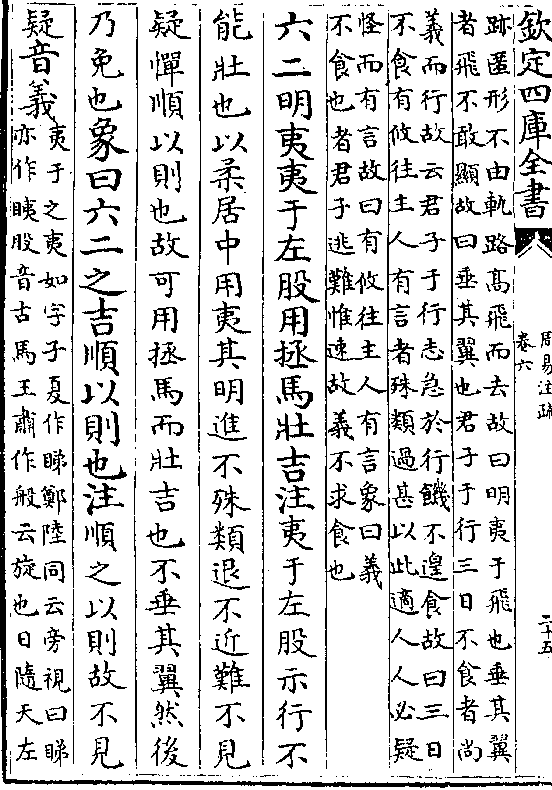 欽定四庫全書
周易注疏
卷六
二十五
跡匿形不由軌路髙飛而去故曰明夷于飛也垂其翼
者飛不敢顯故曰垂其翼也君子于行三日不食者尚
義而行故云君子于行志急於行饑不遑食故曰三日
不食有攸往主人有言者殊類過甚以此適人人必疑
怪而有言故曰有攸往主人有言象曰義
不食也者君子逃難惟速故義不求食也
六二明夷夷于左股用拯馬壯吉注夷于左股示行不
能壯也以柔居中用夷其明進不殊類退不近難不見
疑憚順以則也故可用拯馬而壯吉也不垂其翼然後
乃免也象曰六二之吉順以則也注順之以則故不見
疑音義
夷于之夷如字子夏作睇鄭陸同云旁視曰睇
亦作眱股音古馬王肅作般云旋也日隨天左